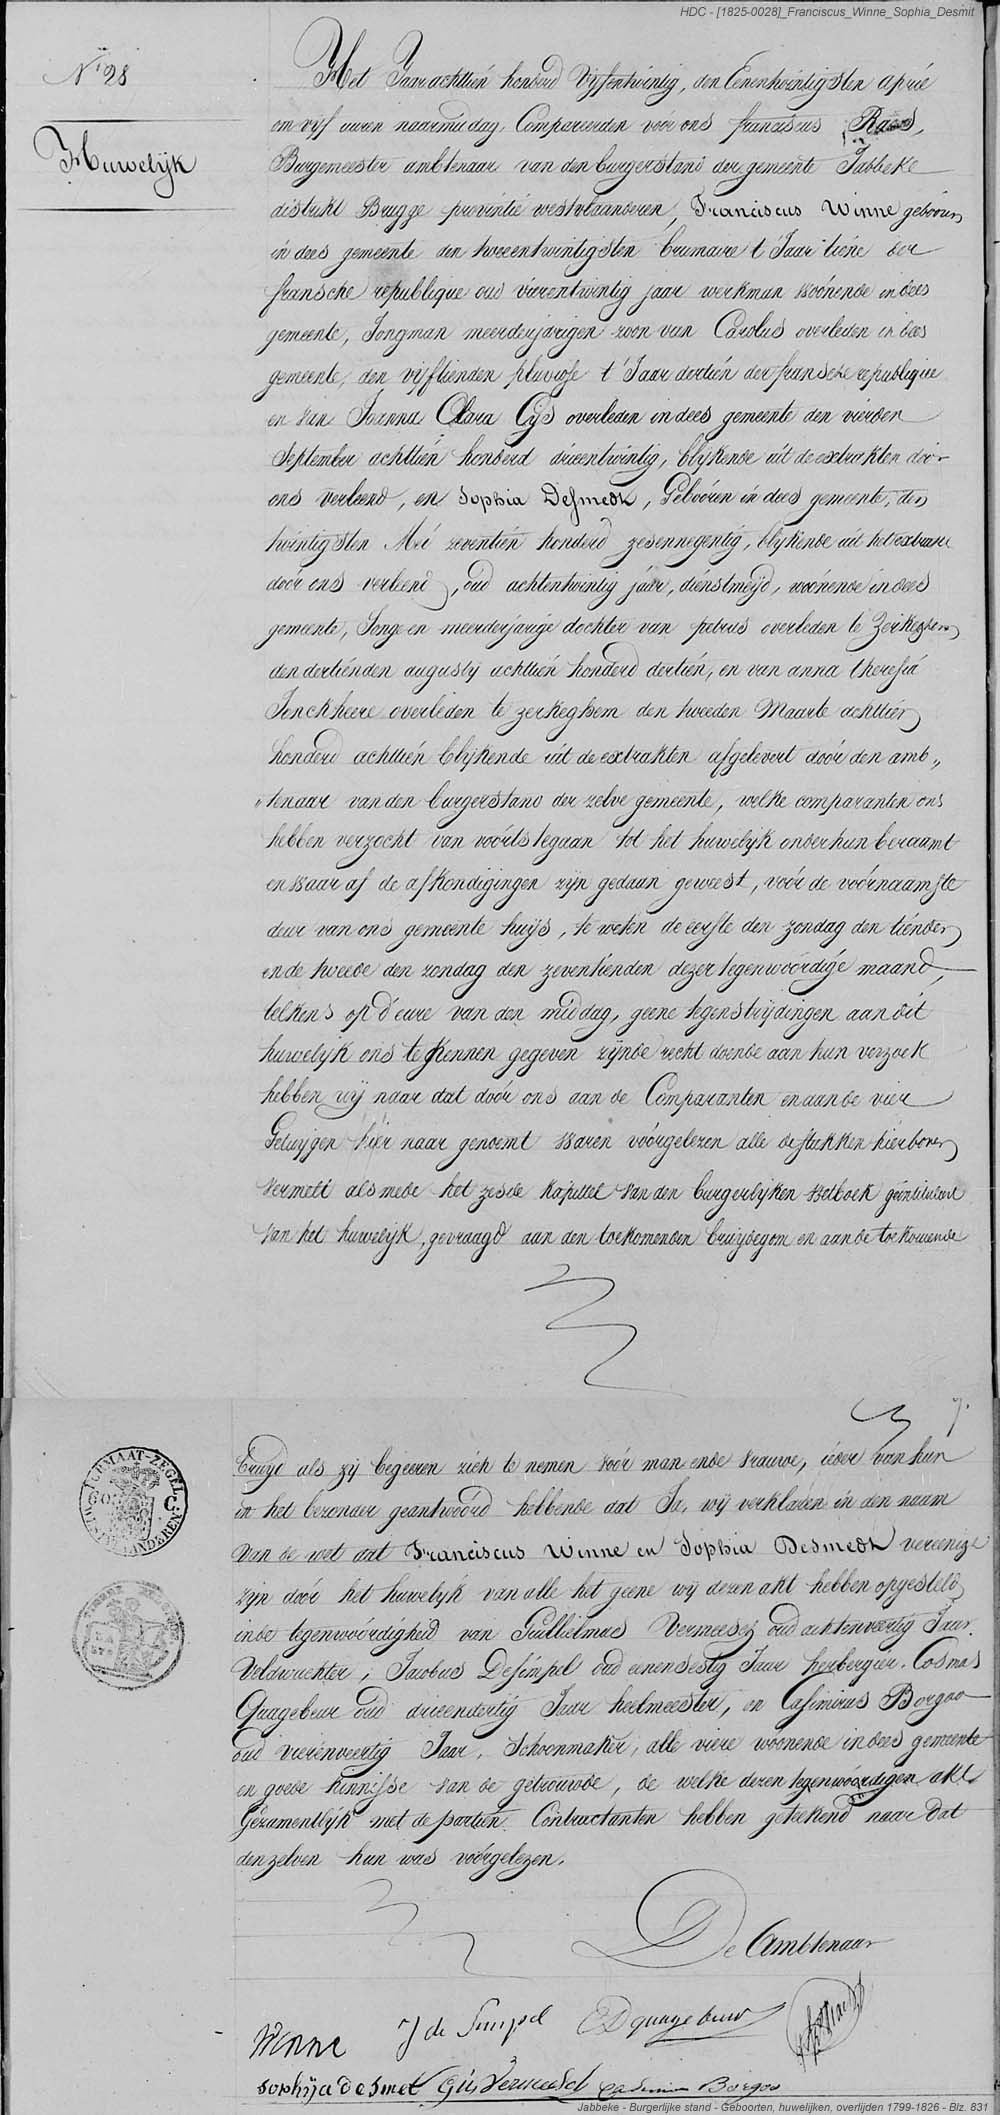 HDC - [1825-0028]_Franciscus_Winne_Sophia_Desmit
N° 28
Huwelijk
Het Jaar achttien honderd Vijfentwintig, den Eenentwintigsten april
om vijf uuren naarmiddag, Compareerden voor ons franciscus Raes,
Burgemeester ambtenaar van den burgerstand der gemeente Jabbeke
distrikt Brugge provintie westvlaanderen, Franciscus Winne gebooren
in dees gemeente den tweeentwintigsten brumaire t Jaar tiene der
fransche republique oud vierentwintig jaar werkman woonende in dees
gemeente, Jongman meerderjarigen zoon van Carolus overleden in dees
gemeente, den vijftienden pluviose t' Jaar dertien der fransche republique
en van Joanna Clara Gijs overleden in dees gemeente den vierden
September achttien honderd drieentwintig, blijkende uit de extrakten door
ons verleend, en Sophia Desmedt, Gebooren in dees gemeente, den
twintigsten Mei zeventien honderd zesennegentig, blijkende uit het extrakt
door ons verleend, oud achtentwintig jaar, dienstmeijd, woonende in dees
gemeente, Jonge en meerderjarige dochter van petrus overleden te Zerkeghem
den dertienden augusty achttien honderd dertien, en van anna theresia
Jonckheere overleden te zerkeghem den tweeden Maarte achttien
honderd achttien blijkende uit de extrakten afgelevert door den amb„
„tenaar van den burgerstand der zelve gemeente, welke comparanten ons
hebben verzocht van voorts tegaan tot het huwelijk onder hun beraamt
en waar af de afkondigingen zijn gedaan geweest, voor de voornaamste
deur van ons gemeente huijs, te weten de eerste den zondag den tienden
ende tweede den zondag den zeventienden dezer tegenwoordige maand,
telkens op d'eure van den middag, geene tegenstrijdingen aan dit
huwelijk ons te kennen gegeven zijnde recht doende aan hun verzoek
hebben wij naar dat door ons aan de Comparanten en aan de vier
Getuijgen hier naar genoemt waren voorgelezen alle de stukken hierboven
vermelt als mede het zesde kapittel van den burgerlijken wetboek geintituleert
van het huwelijk, gevraagd aan den toekomenden bruijdegom en aan de toekomende
Bruijd als zij begeeren zich te nemen voor man ende vrauwe, ieder van hun
in het bezonder geantwoord hebbende dat Ja, wij verklaren in den naam
van de wet dat Franciscus Winne en Sophia Desmedt vereenigt
zijn door het huwelijk van alle het geene wij dezen akt hebben opgesteld
in de tegenwoordigheid van Guillielmus Vermeesch oud achtenveertig Jaar.
Veldwachter, Jacobus Desimpel oud eenensestig Jaar herbergier. Cosmas
Quagebeur oud drieendertig Jaar heelmeester, en Casimirus Borgoo
oud vierenveertig Jaar, Schoenmaker, alle viere woonende in dees gemeente
en goede kennisse van de getrouwde, de welke dezen tegenwoordigen akt
Gezamentlijk met de partien Contractanten hebben getekend naar dat
den zelven hun was voorgelezen.
De Ambtenaar
Winne J de Simpel CD quagebeur
sophija desmet Gui Vermeesch Casimir Borgoo
Jabbeke - Burgerlijke stand - Geboorten, huwelijken, overlijden 1799-1826 - Blz. 831